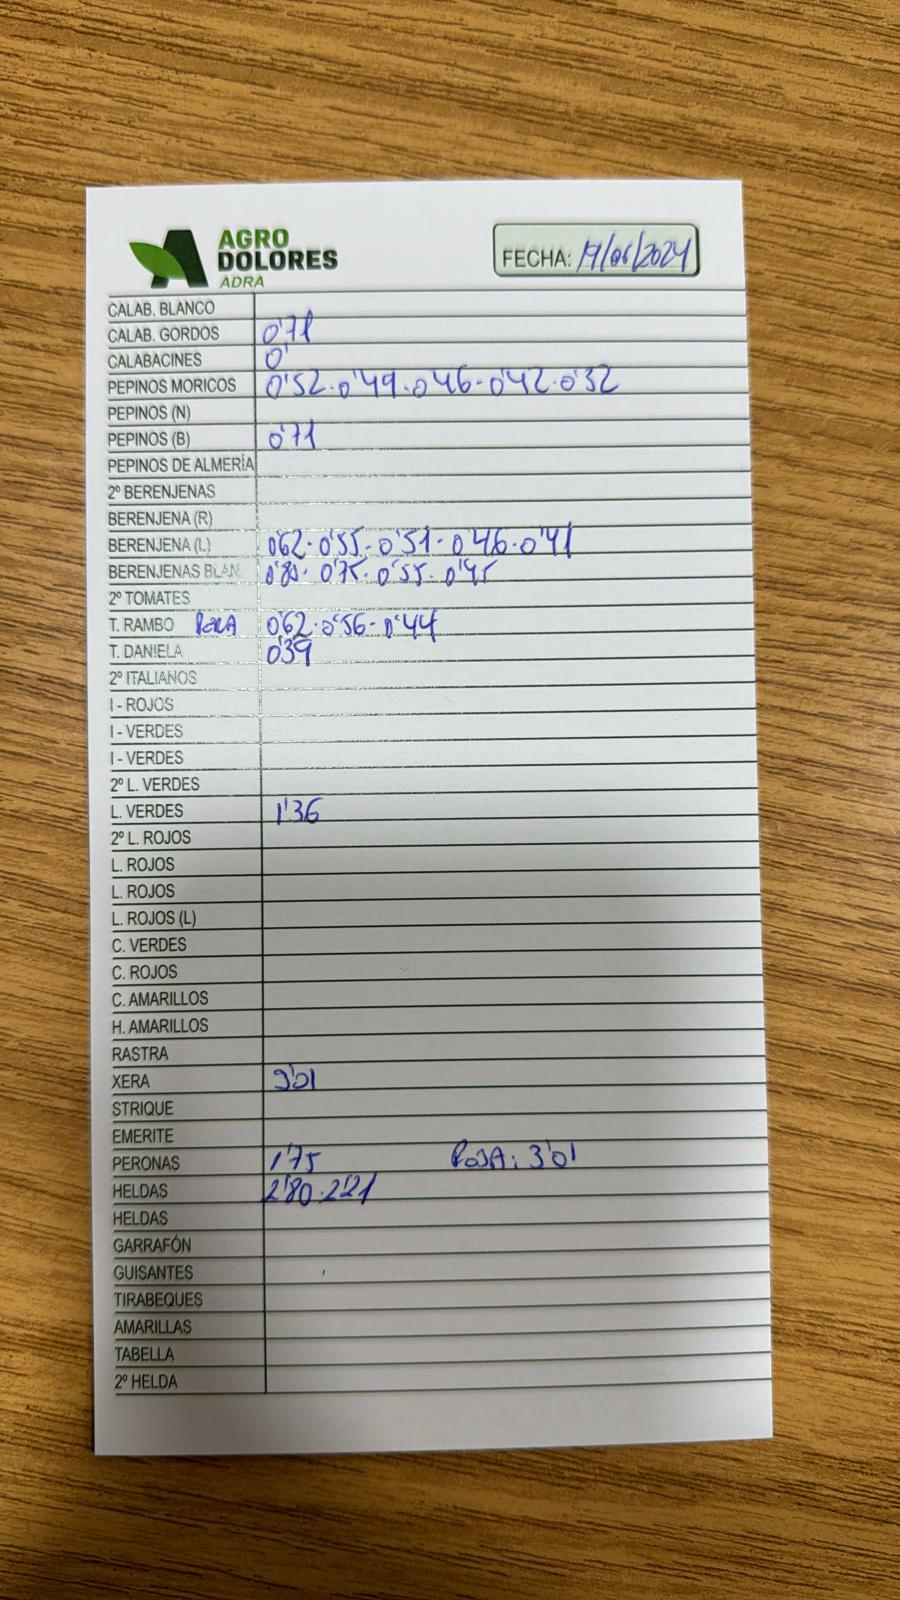 AGRO
DOLORES
ADRA
FECHA: 19/06/2024
CALAB. BLANCO
CALAB. GORDOS 0'71
CALABACINES 0'
PEPINOS MORICOS 0'52·0'49·0'46-0'42·0'32
PEPINOS (N)
PEPINOS (B) 0'71
PEPINOS DE ALMERÍA
2º BERENJENAS
BERENJENA (R)
BERENJENA (L) 0'62·0'55-0'51·0'46·0'41
BERENJENAS BLAN. 0'80· 0'75·0'55·0'45
2º TOMATES
T. RAMBO 0'62·0'56-0'44
T. DANIELA 0'39
2º ITALIANOS
I - ROJOS
I - VERDES
I - VERDES
2º L. VERDES
L. VERDES 1'36
2º L. ROJOS
L. ROJOS
L. ROJOS
L. ROJOS (L)
C. VERDES
C. ROJOS
C. AMARILLOS
H. AMARILLOS
RASTRA
XERA 3'01
STRIQUE
EMERITE
PERONAS 1'75 ROJA: 3'01
HELDAS 2'80·2'21
HELDAS
GARRAFÓN
GUISANTES
TIRABEQUES
AMARILLAS
TABELLA
2º HELDA